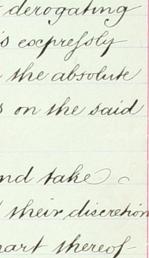 derogating
is expressly
the absolute
s on the said
and take
their discretion
part thereof